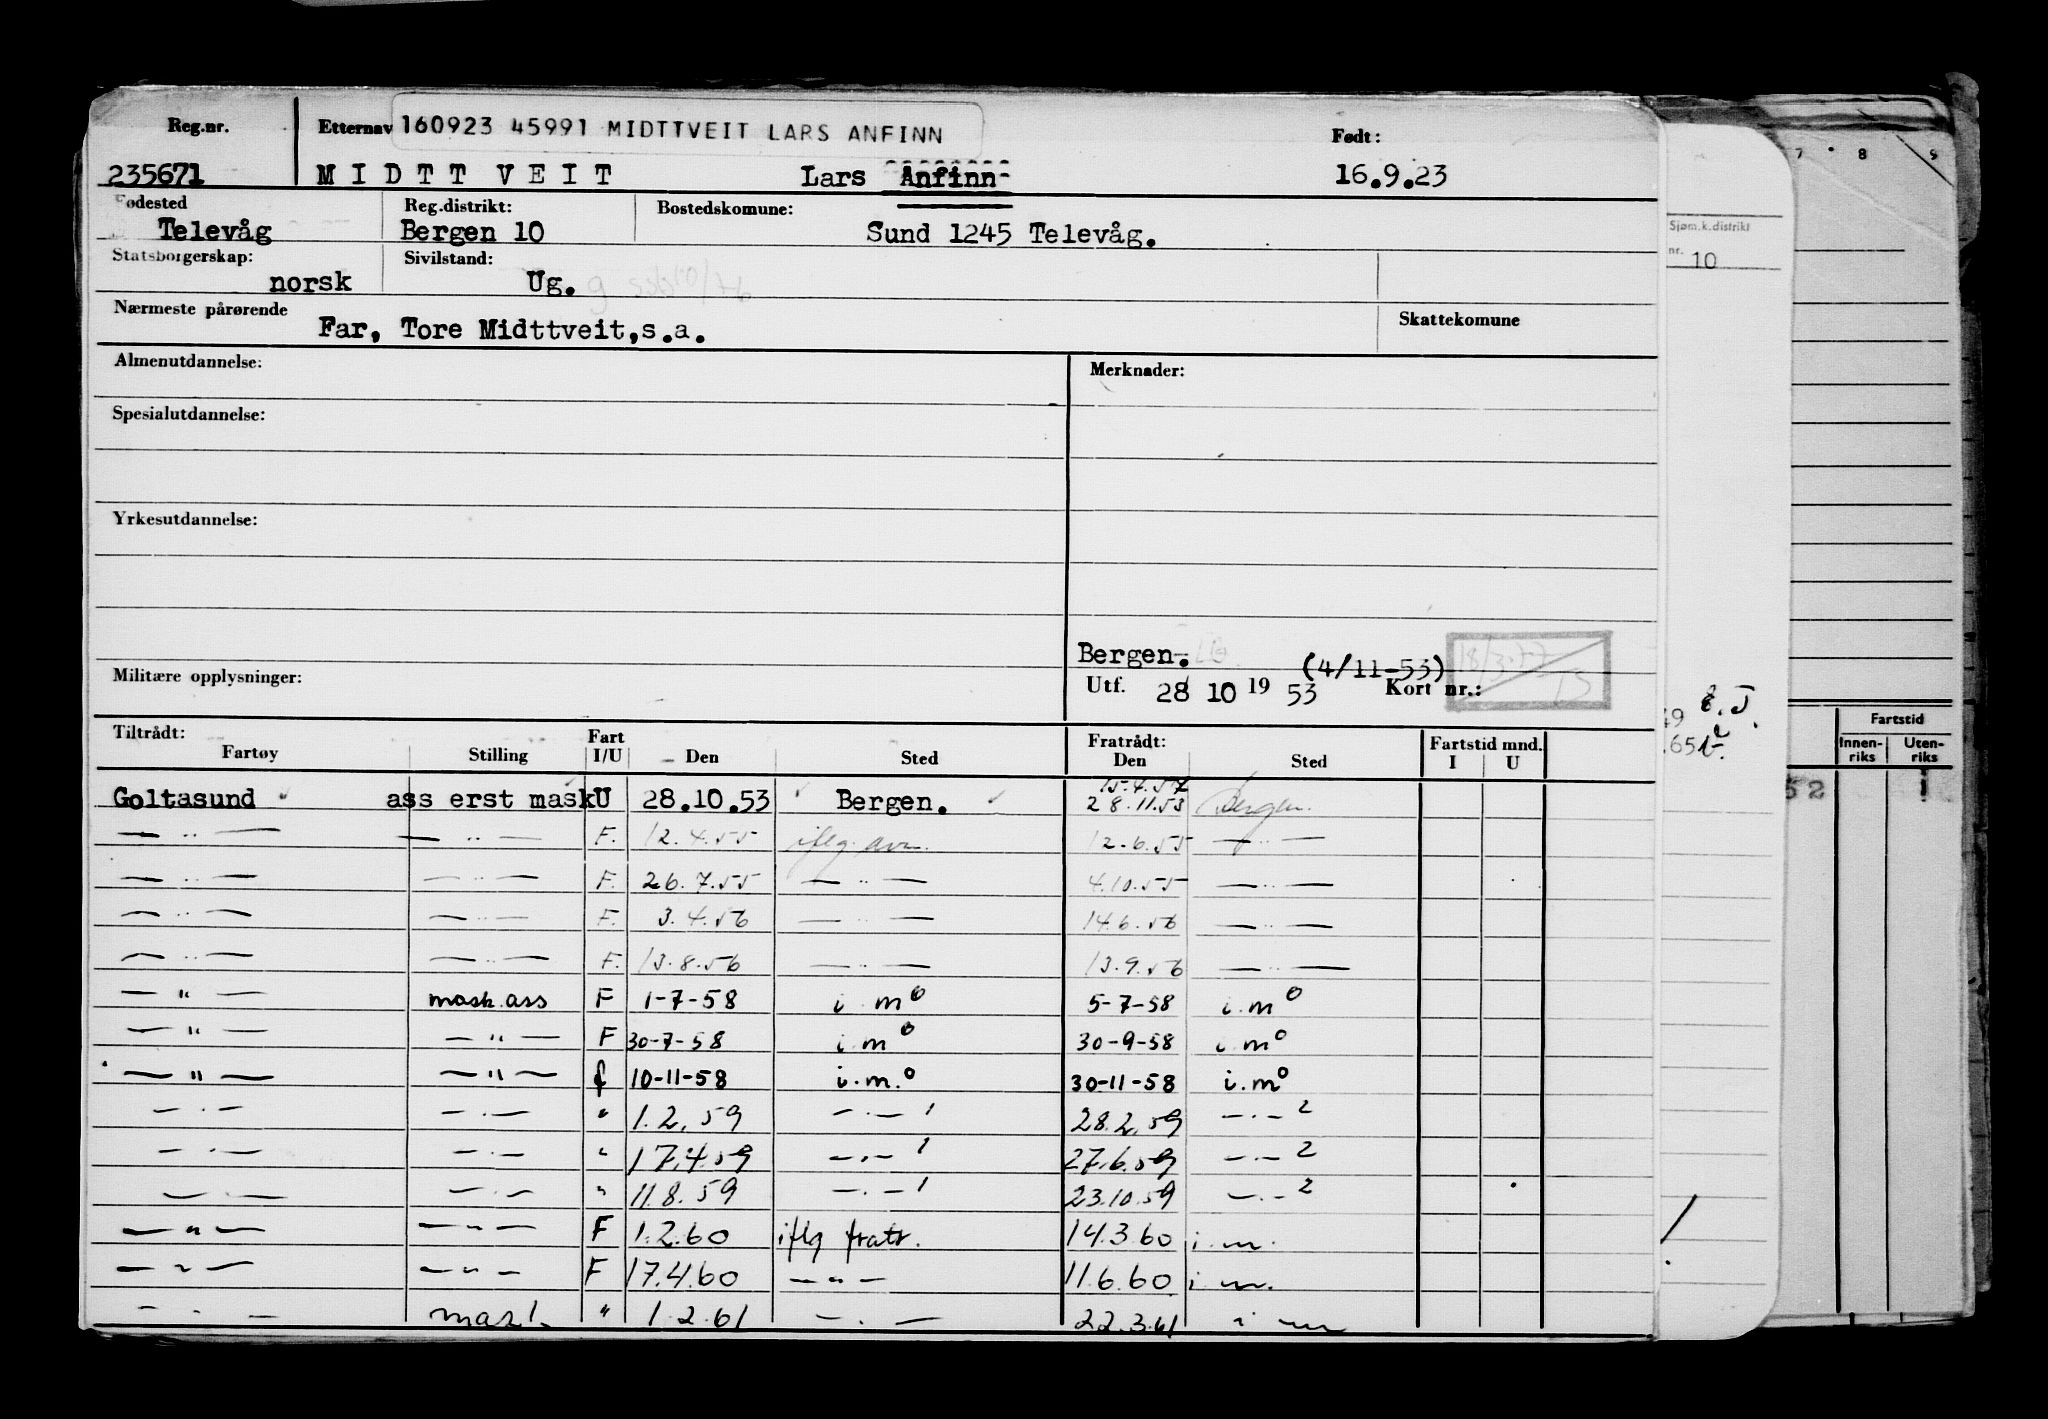 Reg.nr. Etternav 160923 45991 MIDTTVEIT LARS ANFINN Født:
235671 MIDTTVEIT Lars Anfinn 16.9.23
Fødested Reg.distrikt: Bostedskomune:
Televåg Bergen 10 Sund 1245 Televåg.
Statsborgerskap: Sivilstand:
norsk Ug.
Nærmeste pårørende Skattekomune
Far, Tore Midttveit,s.a.
Almenutdannelse: Merknader:
Spesialutdannelse:
Yrkesutdannelse:
Bergen.
(4/11-53) 18/3-77
Militære opplysninger: Utf. 28 10 19 53 Kort nr.:
Tiltrådt: Fratrådt:
Fartøy Stilling Fart I/U Den Sted Den Sted Fartstid mnd. I U
15.4.57
Goltasund ass erst mask U 28.10.53 Bergen. 28.11.53 Bergen.
— " — — " — F. 12.4.55 iflg. avm. 12.6.55 — " —
— " — — " — F. 26.7.55 — " — 4.10.55 — " —
— " — — " — F. 3.4.56 — " — 14.6.56 — " —
— " — — " — F. 13.8.56 — " — 13.9.56 — " —
— " — mask.ass F 1-7-58 i.m0 5-7-58 i.m0
— " — — " — F 30-7-58 i.m0 30-9-58 i.m0
— " — — " — f 10-11-58 i.m.0 30-11-58 i.m0
— . — — . — " 1.2.59 — . — 1 28.2.59 — . — 2
— . — — . — " 17.4.59 — . — 1 27.6.59 — . — 2
— . — — . — " 11.8.59 — . — 1 23.10.59 — . — 2
— " — — " — F 1.2.60 iflg fratr. 14.3.60 i.m.
— " — — " — F 17.4.60 — " — 11.6.60 i.m.
— . — mask. " 1.2.61 — . — 22.3.61 i m
Sjøm.k.distrikt
nr. 10
7 8 9
Fartstid
Innen-riks Uten-riks
52